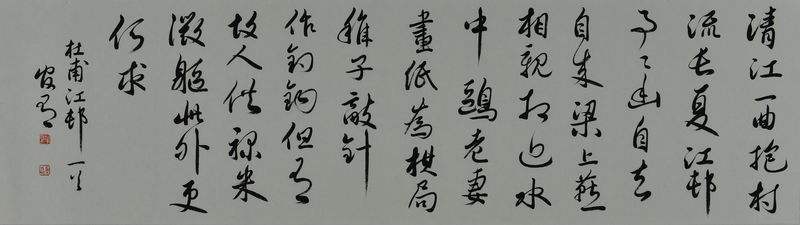 清江一曲抱村
流長夏江邨
事〻幽自去
自来梁上燕
相親相近水
中鷗老妻
畫紙為棋局
稚子敲針
作釣鉤但有
故人供祿米
微軀此外更
何求
杜甫江邨一首